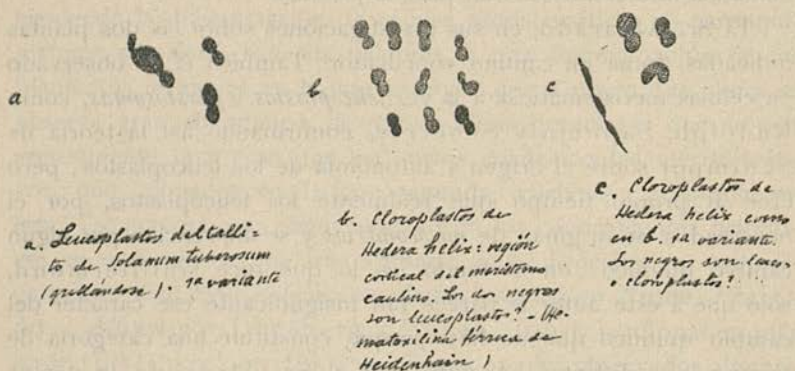 a
b
c
a. Leucoplastos del talli-
to de Solanum tuberosum
(grillándose). 1a variante
b. Cloroplastos de
Hedera helix: región
cortical del meristemo
caulino. Los dos negros
son leucoplastos? - (He-
matoxilina férrica de
Heidenhain)
c. Cloroplastos de
Hedera helix como
en b. 1a variante.
Los negros son leuco-
o cloroplastos?